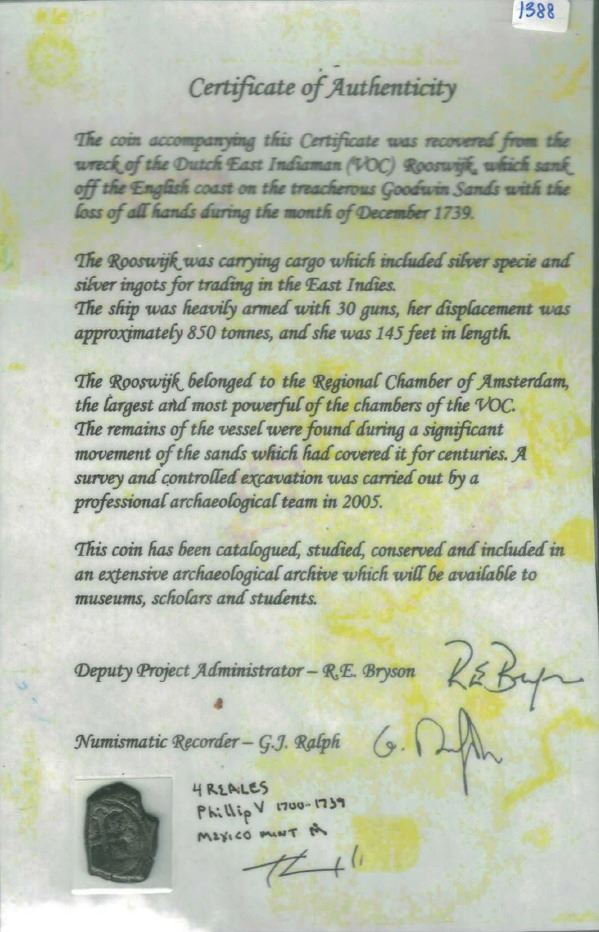 1388
Certificate of Authenticity
The coin accompanying this Certificate was recovered from the
wreck of the Dutch East Indiaman (VOC) Rooswijk, which sank
off the English coast on the treacherous Goodwin Sands with the
loss of all hands during the month of December 1739.
The Rooswijk was carrying cargo which included silver specie and
silver ingots for trading in the East Indies.
The ship was heavily armed with 30 guns, her displacement was
approximately 850 tonnes, and she was 145 feet in length.
The Rooswijk belonged to the Regional Chamber of Amsterdam,
the largest and most powerful of the chambers of the VOC.
The remains of the vessel were found during a significant
movement of the sands which had covered it for centuries. A
survey and controlled excavation was carried out by a
professional archaeological team in 2005.
This coin has been catalogued, studied, conserved and included in
an extensive archaeological archive which will be available to
museums, scholars and students.
Deputy Project Administrator – R.E. Bryson R.E. Bryson
Numismatic Recorder – G.J. Ralph G. Ralph
4 REALES
Phillip V 1700-1739
MEXICO MINT M